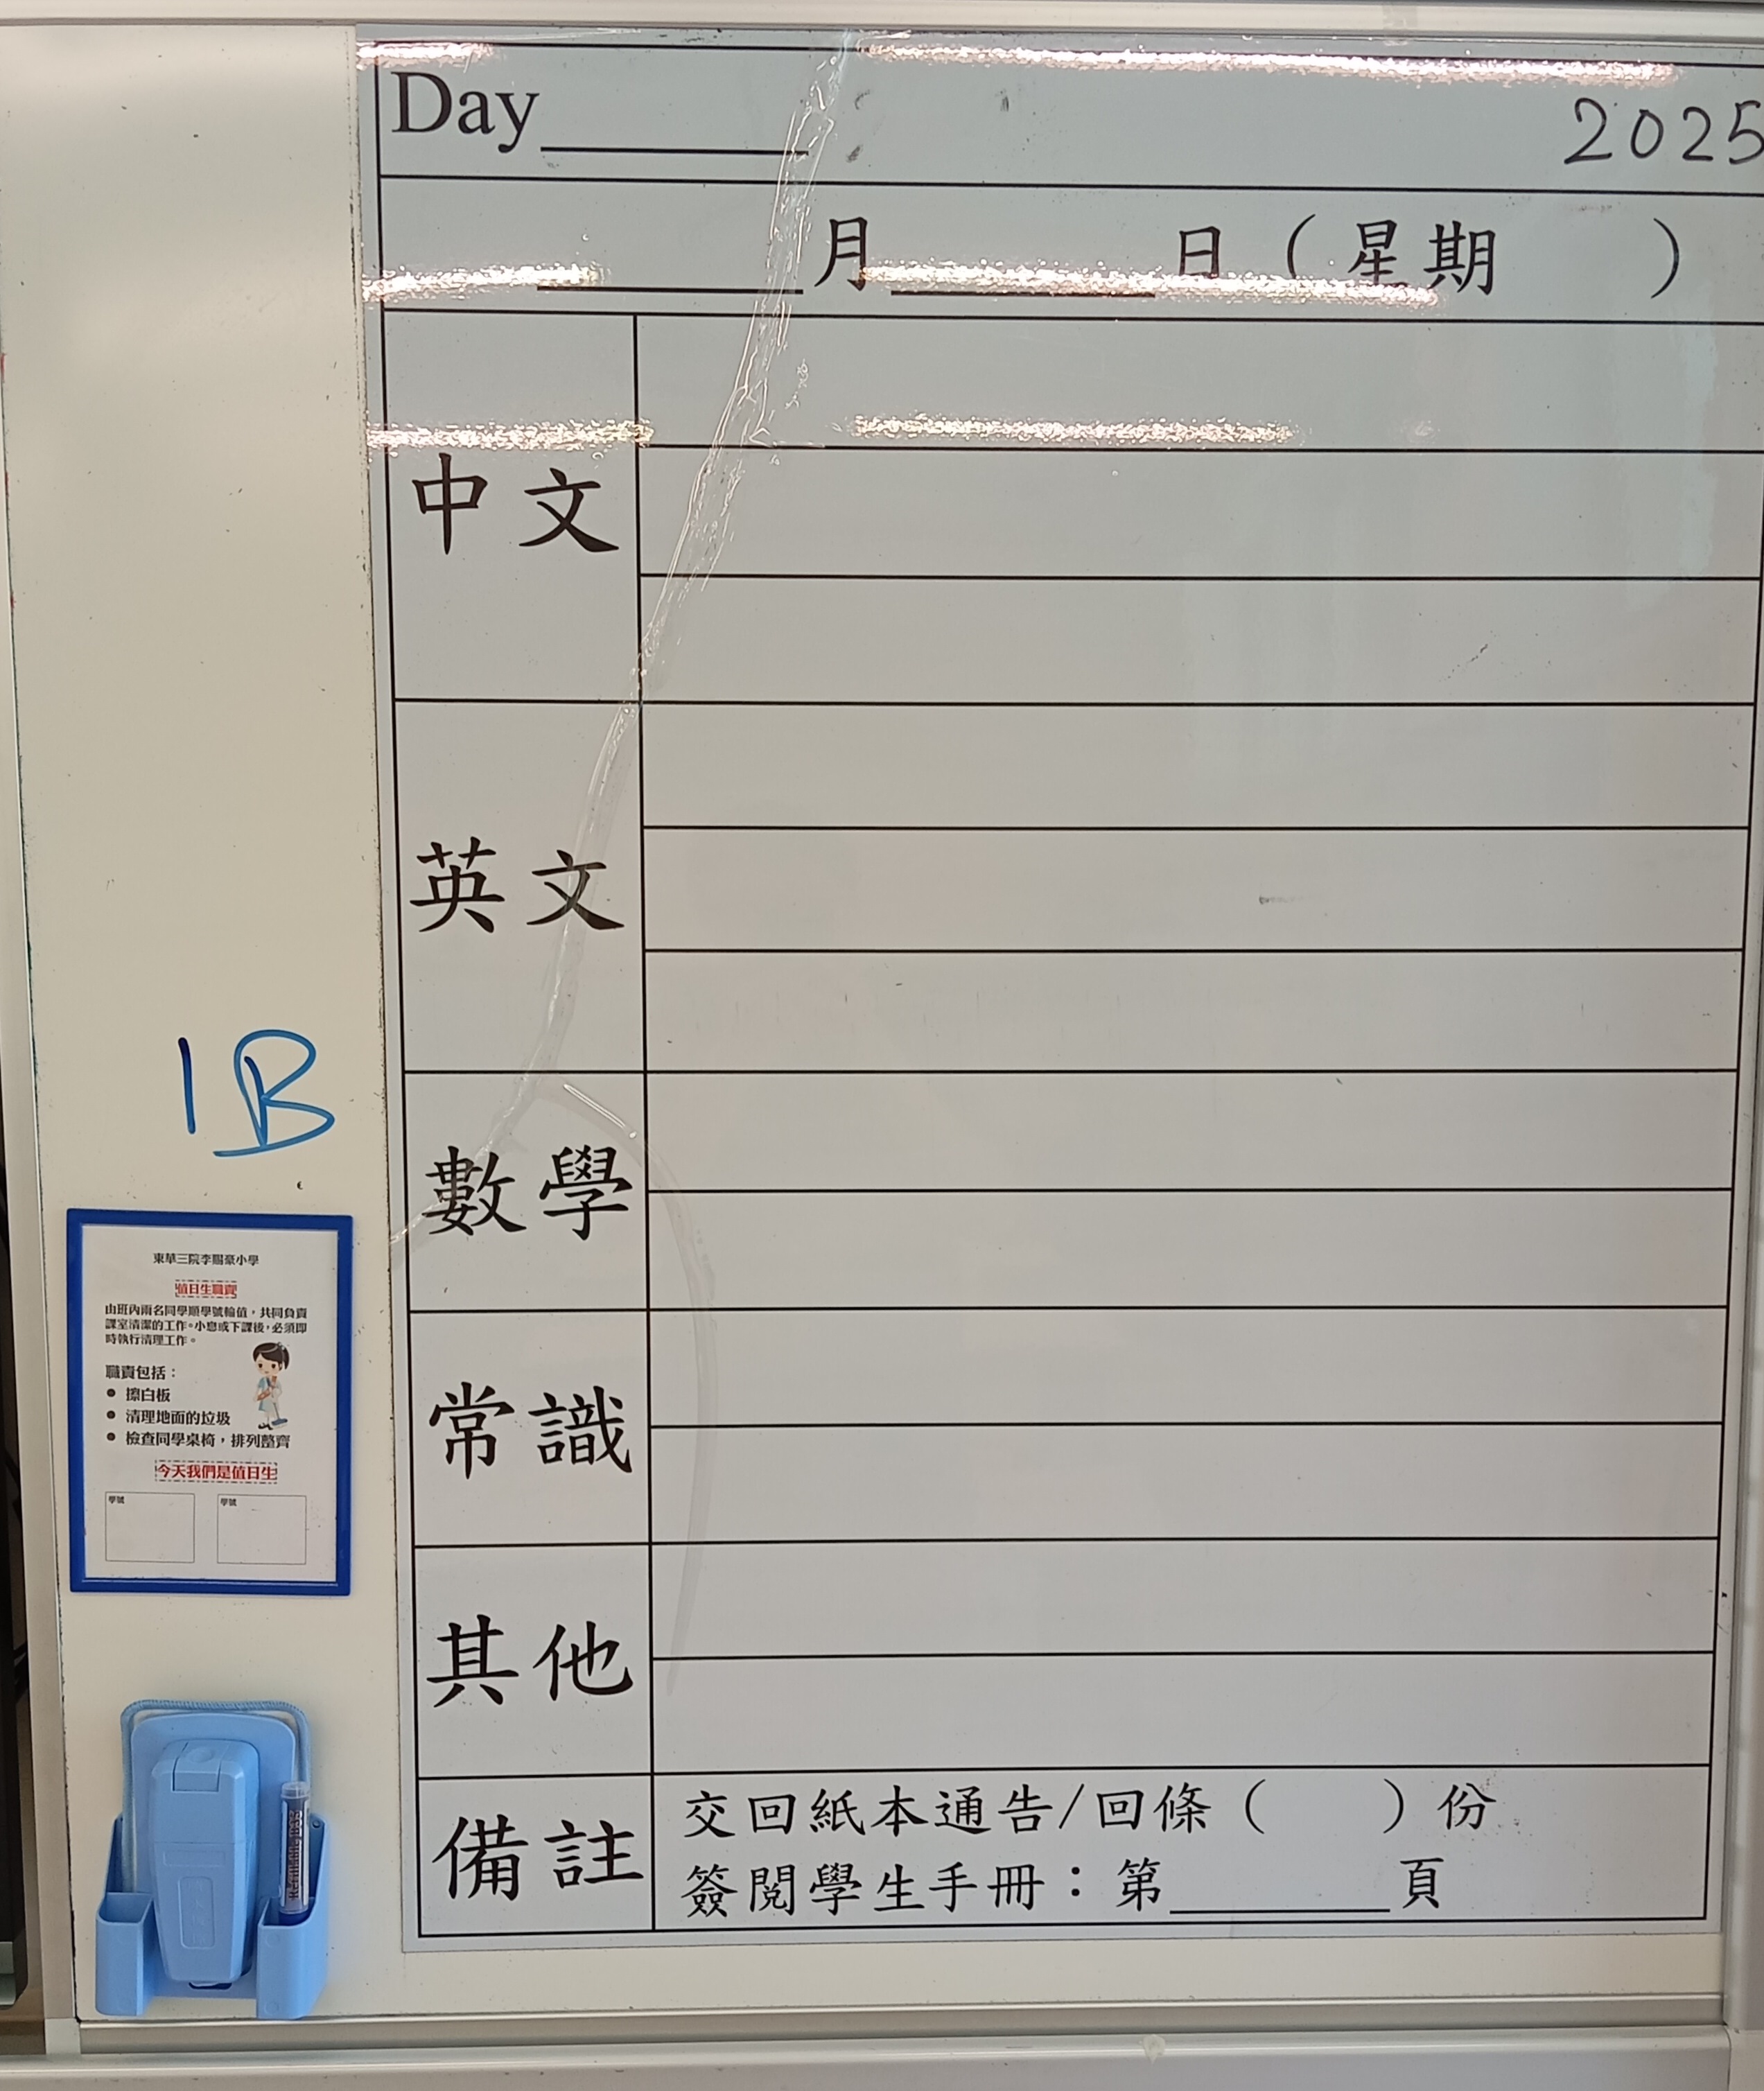 Day______ 2025
______月______日（星期　　）
中文
英文
數學
常識
其他
備註
交回紙本通告/回條（　　）份
簽閱學生手冊：第______頁
1B
東華三院李賜豪小學
值日生職責
由班內兩名同學順學號輪值，共同負責
課室清潔的工作。小息或下課後，必須即
時執行清理工作。
職責包括：
• 擦白板
• 清理地面的垃圾
• 檢查同學桌椅，排列整齊
今天我們是值日生
學號 學號